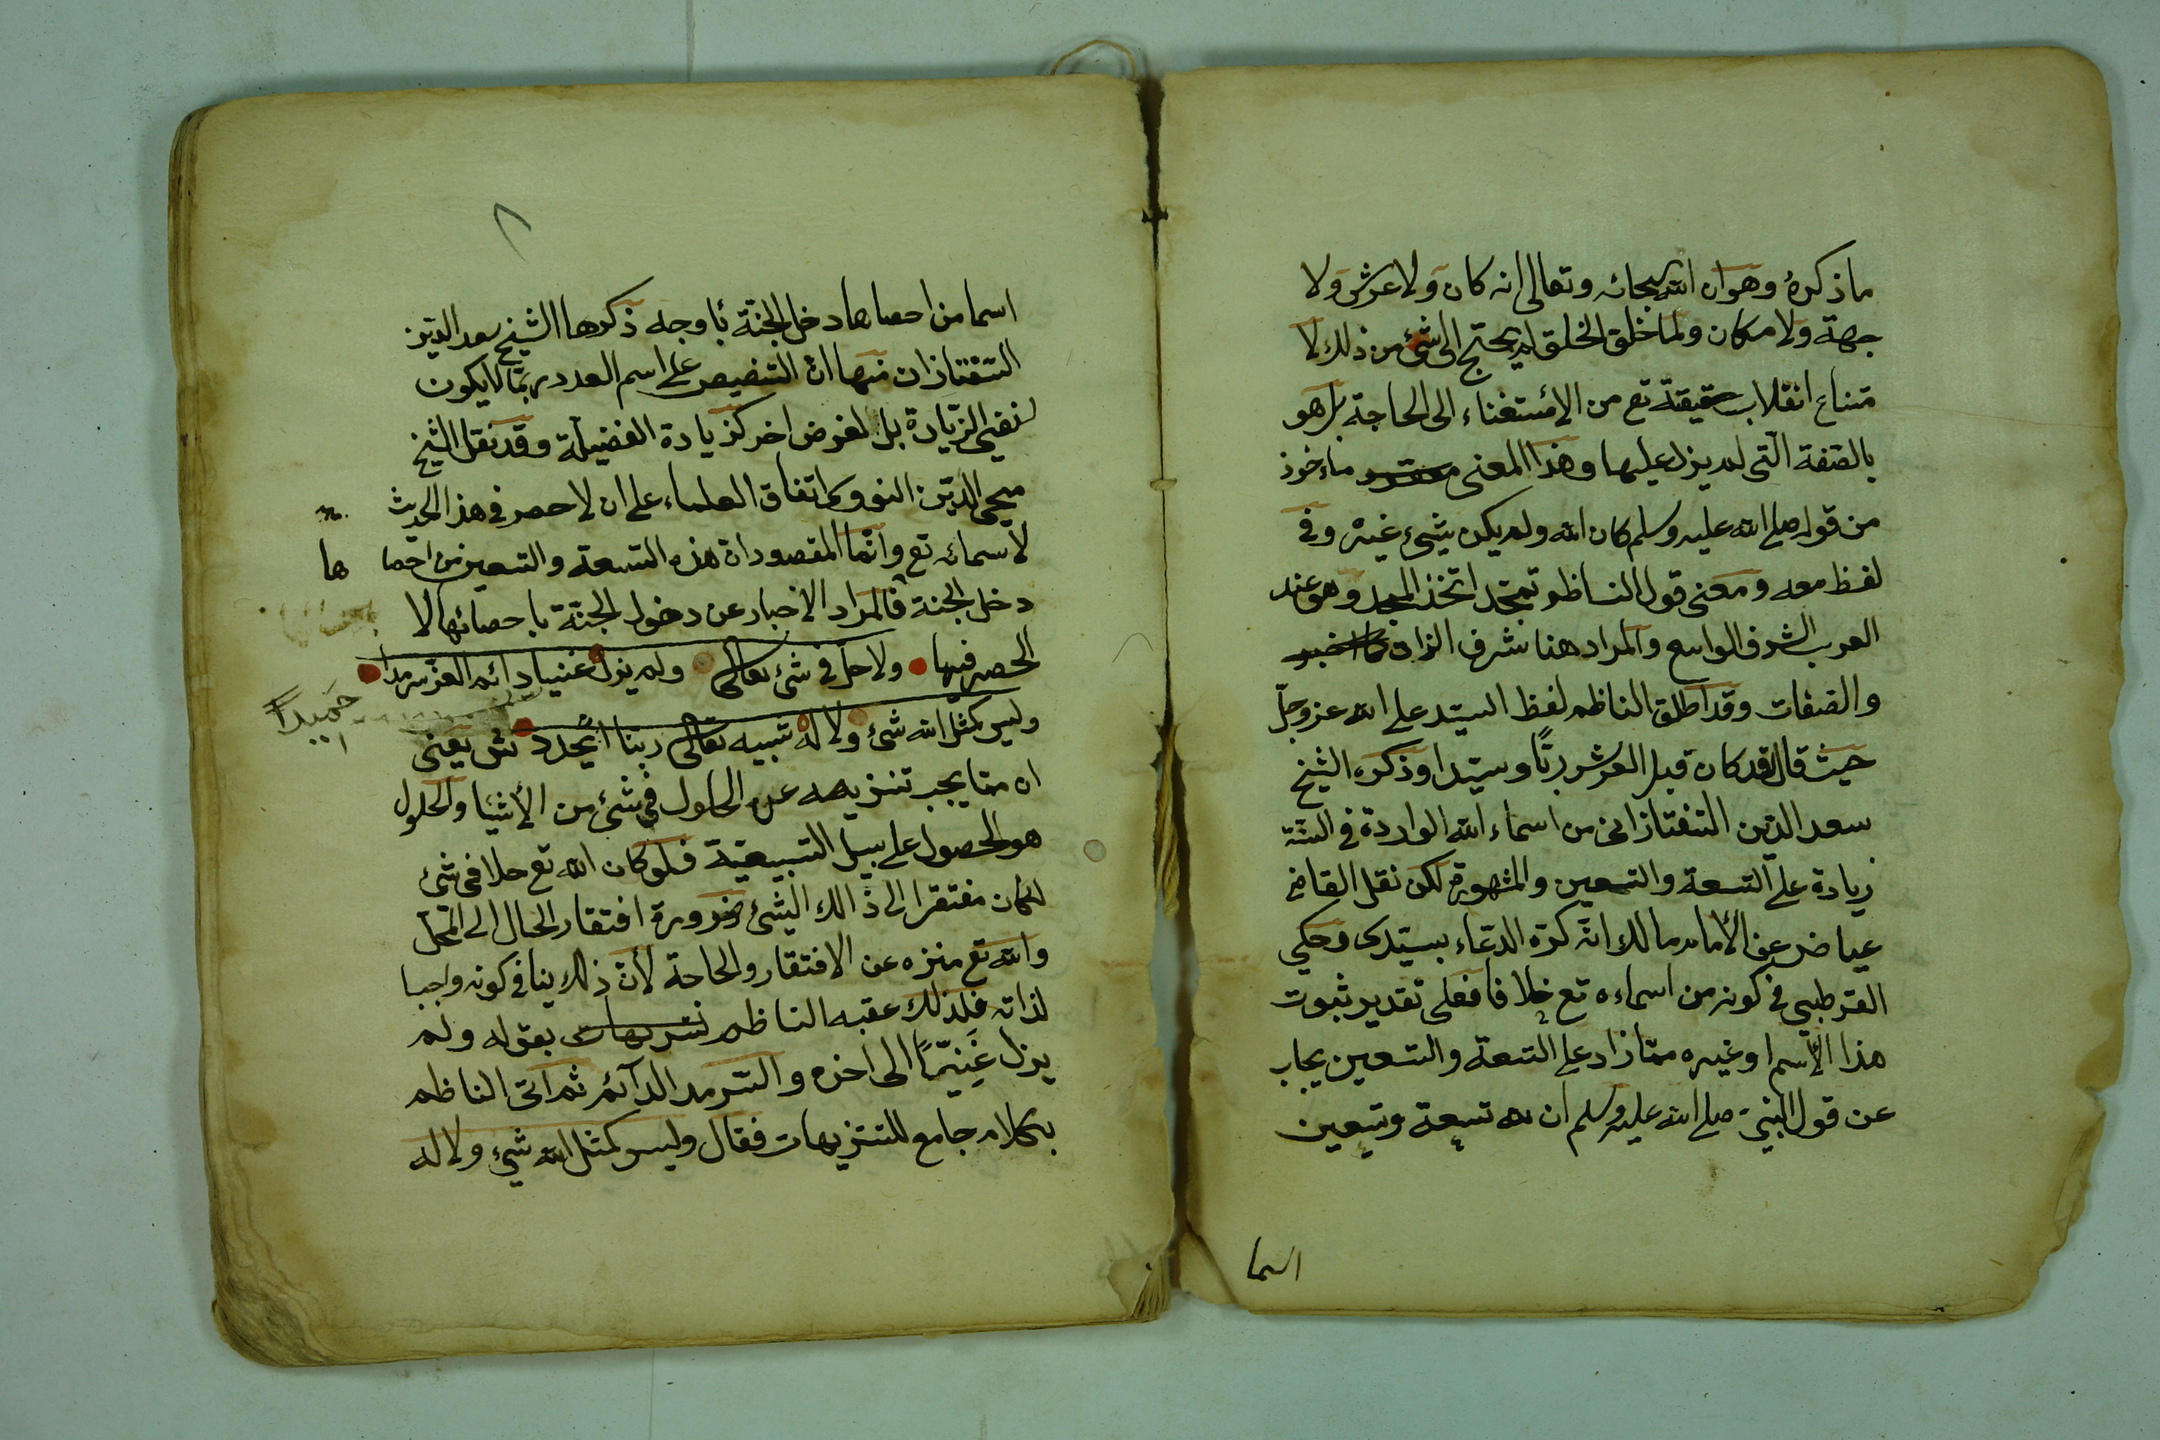 ما ذكره وهو ان الله سبحانه وتعالى انه كان ولا عرش ولا
جهة ولا مكان ولما خلق الخلق لم يحتج الى شئ من ذلك لا
متناع انقلاب حقيقة تع من الاستغناء الى الحاجة بل هو
بالصفة التى لم يزل عليها وهذا المعنى ماءخوذ
من قوله صلى الله عليه وسلم كان الله ولم يكن شئ غيره وفى
لفظ معه ومعنى قول الناظم تمجد اتخذ المجد وهو عند
العرب الشرف الواسع والمراد هنا شرف الذات
والصفات وقد اطلق الناظم لفظ السيد على الله عز وجل
حيث قال لقد كان قبل العرش ربًّا وسيدا وذكره الشيخ
سعد الدين التفتازانى من اسماء الله الواردة فى السنة
زيادة على التسعة والتسعين والمشهورة لكن نقل القاضى
عياض عن الأمام مالك انه كره الدعاء بسيدى وحكى
القرطبى فى كونه من اسماءه تع خلافا فعلى تقدير ثبوت
هذا الأسم او غيره مما زاد على التسعة والتسعين يجاب
عن قول النبى صلى الله عليه وسلم ان لله تسعة وتسعين
اسما
٨
اسما من احصاها دخل الجنة بأوجه ذكرها الشيخ سعد الدين
التفتازان منها ان التنصيص على اسم العدد ربما لا يكون
لنفى الزيادة بل لغرض اخر كزيادة الفضيلة وقد نقل الشيخ
محيى الدين النووى اتفاق العلماء على ان لا حصر فى هذا الحديث
لأسمائه تع وانما المقصود ان هذه التسعة والتسعين من احصا ها
دخل الجنة فالمراد الاخبار عن دخول الجنة باحصائها لا
الحصر فيها ولا حل فى شئ تعالى ولم يزل غنيا دائم العز سرمدا
حَمِيدًا
وليس كمثل الله شئ ولا له شبيه تعالى ربنا ان يحدد ش يعنى
ان مما يجب تنزيهه عن الحلول فى شئ من الأشيا والحلول
هو الحصول على سبيل التبيعية فلو كان الله تع حلا فى شئ
لكان مفتقرا الى ذالك الشئ ضرورة افتقار الحال الى المحل
والله تع منزه عن الافتقار والحاجة لأن ذلك ينافى كونه واجبا
لذاته فلذلك عقبه الناظم بقوله ولم
يزل غَنِيًّا الى اخره والسرمد الدآئم ثم اتى الناظم
بكلام جامع للتنزيهات فقال وليس كمثل الله شئ ولا له